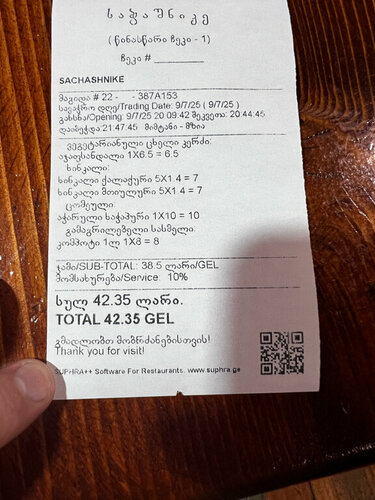 საჭაშნიკე
(წინასწარი ჩეკი - 1)
ჩეკი #
SACHASHNIKE
მაგიდა # 22 - - 387A153
სავაჭრო დღე/Trading Date: 9/7/25 ( 9/7/25 )
გახსნა/Opening: 9/7/25 20:09:42 შეკვეთა: 20:44:45
დაიბეჭდა:21:47:45 მიმტანი - მზია
ვეგეტარიანული ცხელი კერძი:
აჯაფსანდალი 1X6.5 = 6.5
ხინკალი:
ხინკალი ქალაქური 5X1.4 = 7
ხინკალი მთიულური 5X1.4 = 7
ცომეული:
აჭარული ხაჭაპური 1X10 = 10
გამაგრილებელი სასმელი:
კომპოტი 1ლ 1X8 = 8
ჯამი/SUB-TOTAL: 38.5 ლარი/GEL
მომსახურება/Service: 10%
სულ 42.35 ლარი.
TOTAL 42.35 GEL
გმადლობთ მობრძანებისთვის!
Thank you for visit!
SUPHRA++ Software For Restaurants. www.suphra.ge